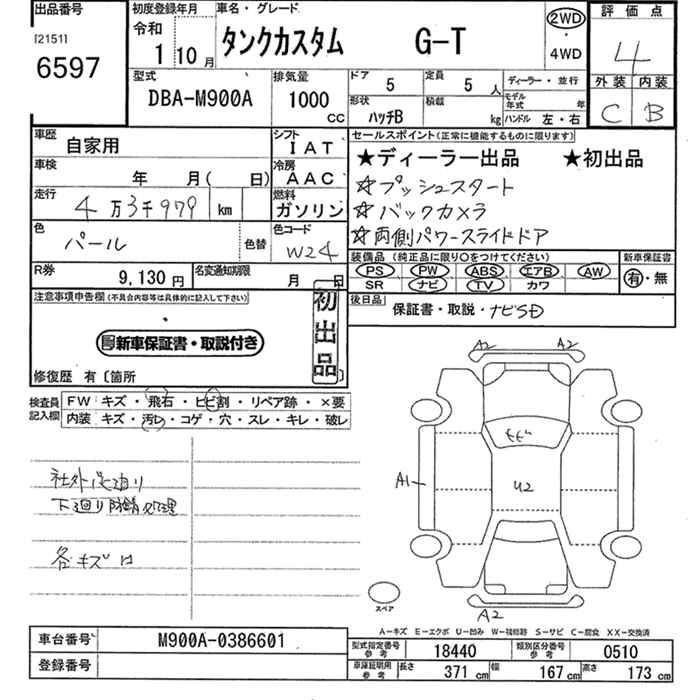 出品番号
[2151]
6597
初度登録年月
令和
1 10 月
車名・グレード
タンクカスタム G-T
2WD
・
4WD
評価点
4
外装 内装
C B
型式
DBA-M900A
排気量
1000
CC
ドア 5
定員 5 人
形状 ハッチB
積載 kg
ディーラー・並行
モデル年式 年
ハンドル 左・右
車歴 自家用
シフト IAT
車検 年 月( 日)
冷房 AAC
走行 4万3千979 km
燃料 ガソリン
色 パール
色替
色コード W24
R券 9,130 円
名変通知期限 月 日
セールスポイント(正常に機能するものに限ります)
★ディーラー出品 ★初出品
☆プッシュスタート
☆バックカメラ
☆両側パワースライドドア
装備品 (純正品に限り○をつけてください)
PS PW ABS エアB AW
SR ナビ TV カワ
新車保証書
有・無
後日品
保証書・取説・ナビSD
注意事項申告欄(不具合内容等は具体的に記入して下さい)
新車保証書・取説付き
初出品
修復歴 有〔箇所 〕
検査員記入欄
FW キズ・飛石・ヒビ割・リペア跡・×要
内装 キズ・汚レ・コゲ・穴・スレ・キレ・破レ
下廻り防錆処理
各キズ
A2 A2
A1
U2
A2
スペア
A-キズ E-エクボ U-凹み W-補修跡 S-サビ C-腐食 XX-交換済
車台番号 M900A-0386601
登録番号
型式指定番号 参考 18440
類別区分番号 参考 0510
車庫証明用 参考 長さ 371 cm 幅 167 cm 高さ 173 cm